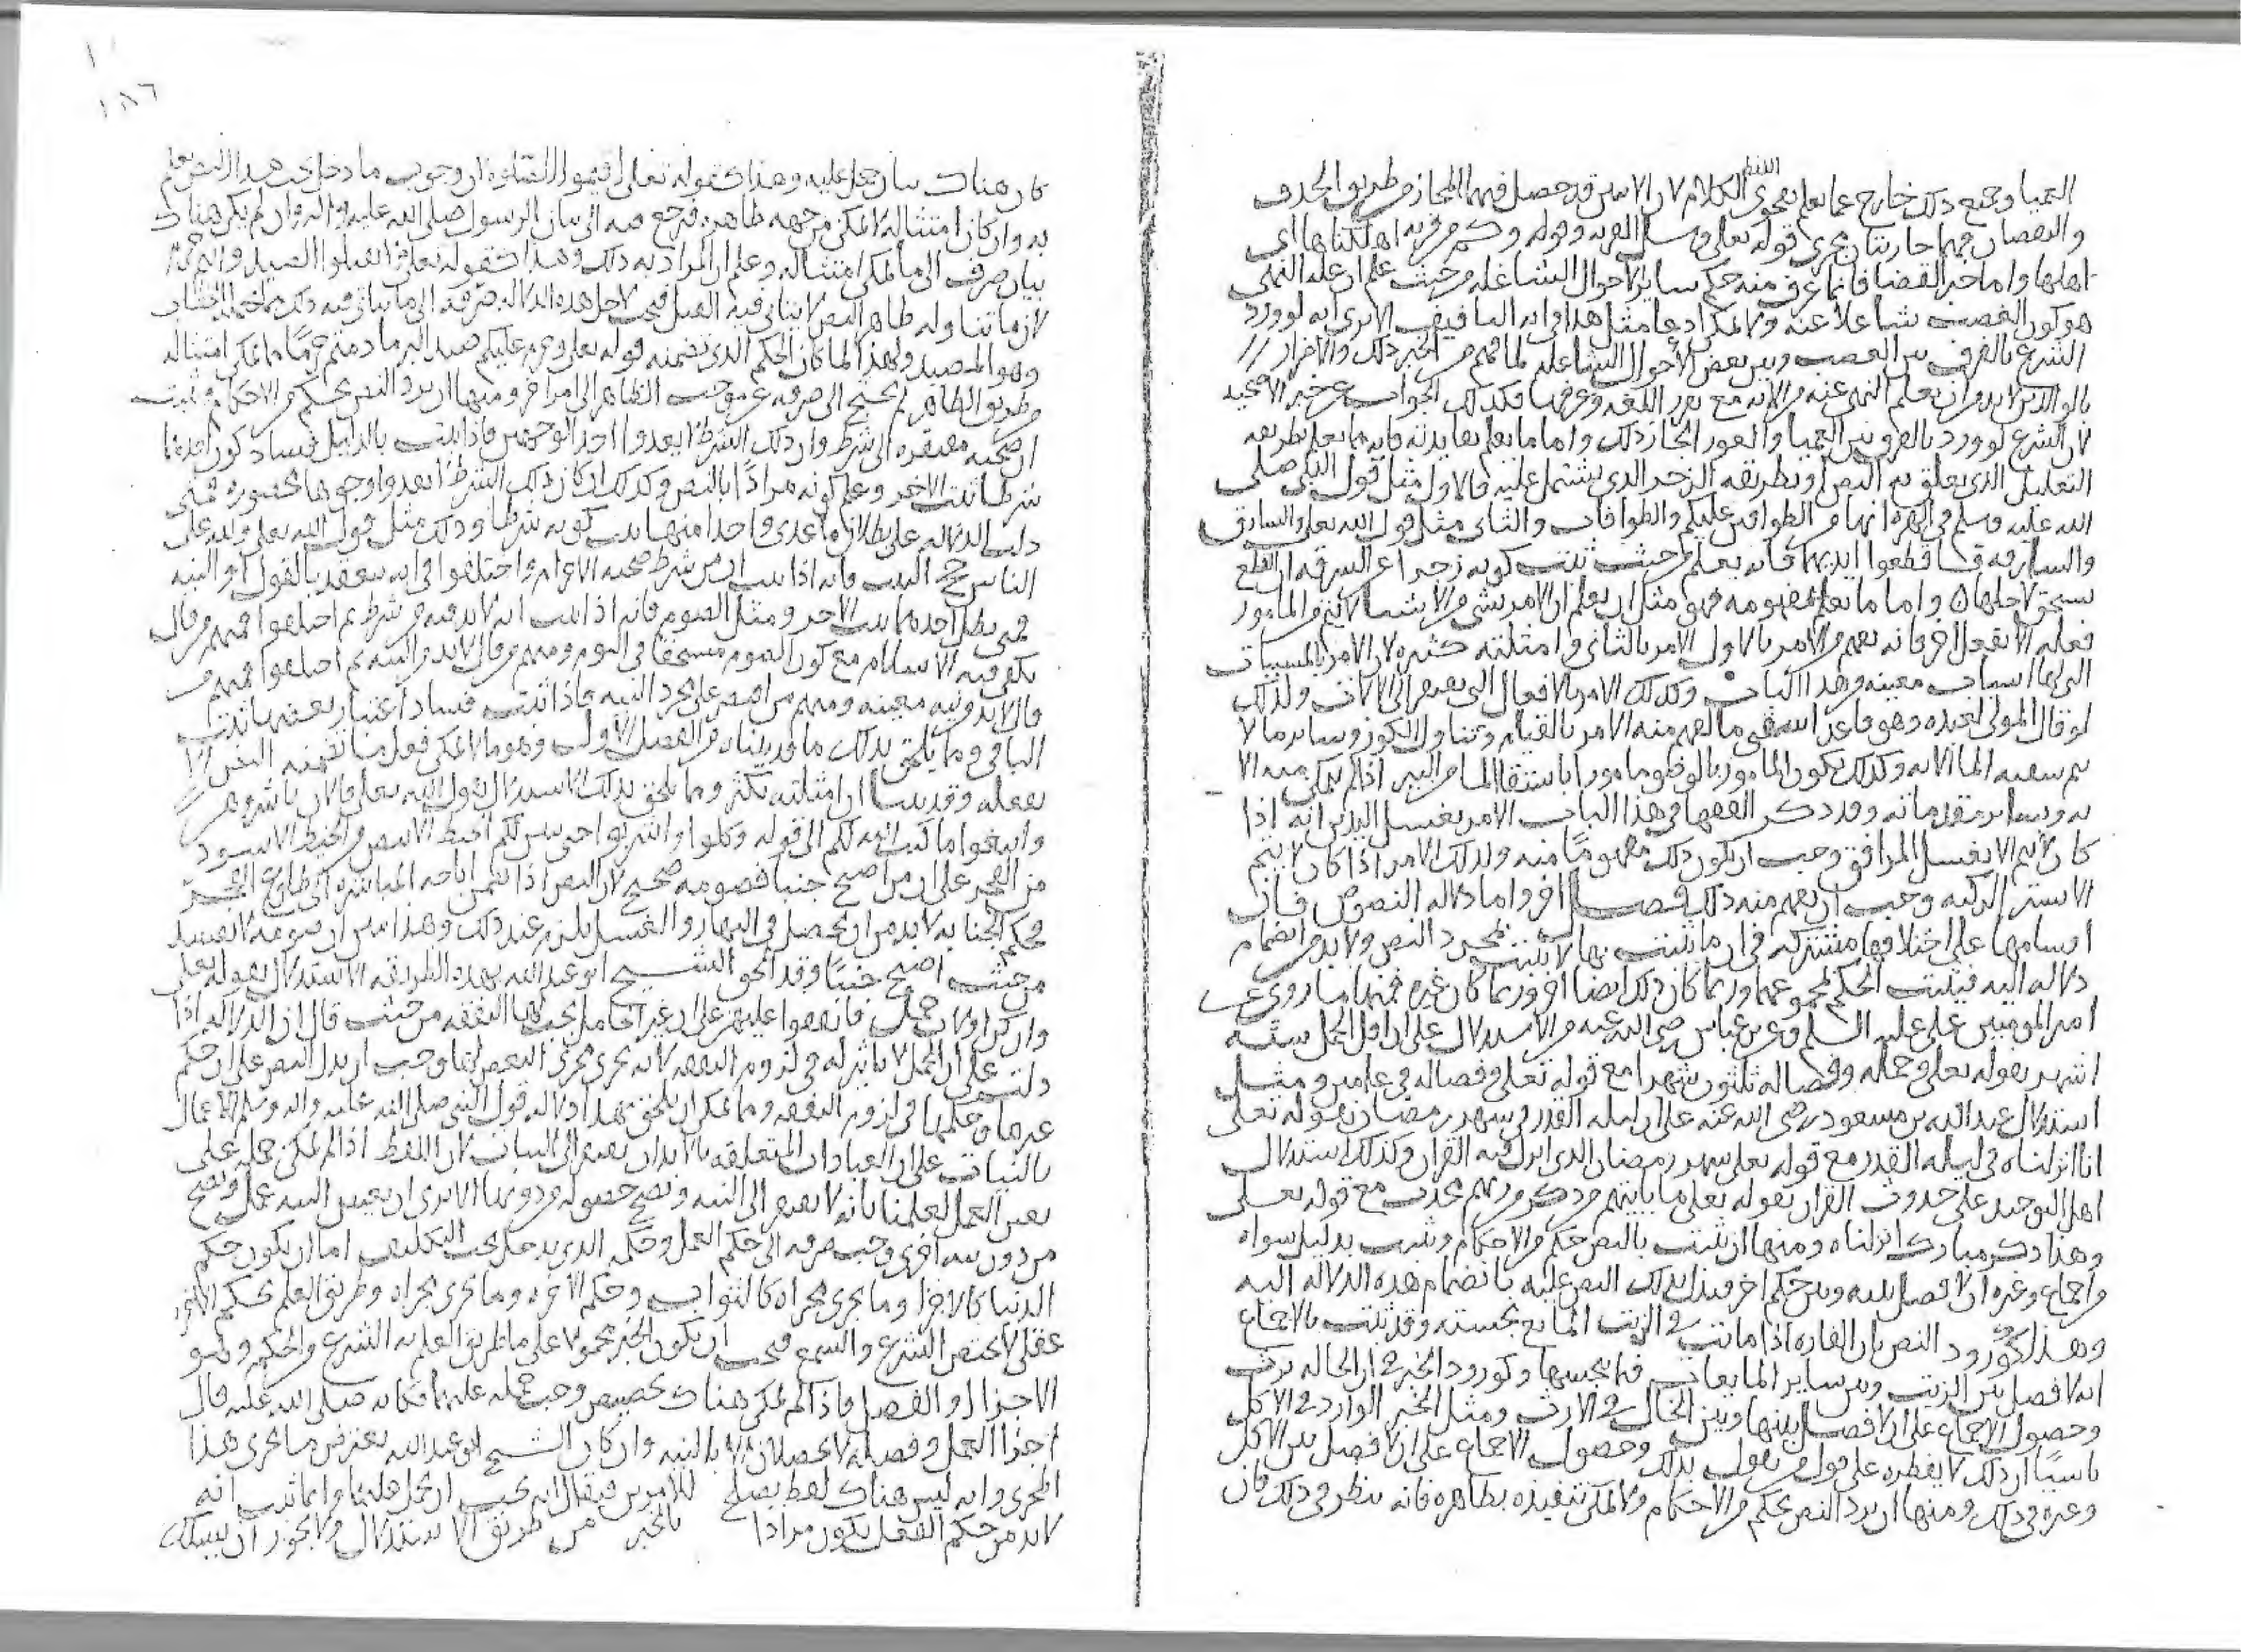 العميا وجميع ذلك خارج عما يعلم بفحوى اللفظ الكلام لان الاسن قد حصل فيهما المجاز من طريق الحذف
والنقصان فهما جاريتان مجرى قوله تعلى وسل القريه وقوله وكم من قريه اهلكناها اي
اهلها واما خبر القضا فانما عرف منه حكم ساير الاحوال الشاغله من حيث علم ان عله النهي
هو كون الغضب شاغلا عنه ولا يمكن ادعا مثل هذا في ايه التافيف الا ترى انه لو ورد
الشرع بالفرق بين الغضب وبين بعض الاحوال الشاغله لما فهم من الخبر ذلك والاضرار
بالوالدين لا بد من ان يعلم النهي عنه من الايه مع تقرر اللغه وعرفها فكذلك الجواب عن خبر الاضحيه
لان الشرع لو ورد بالفرق بين العميا والعور لجاز ذلك واما ما يعلم بفايدته فانه ما يعلم بطريقه
التعليل الذي يعلق به النص او بطريقه الزجر الذي يشتمل عليه فالاول مثل قول النبي صلى
الله عليه وسلم في الهره انها من الطوافين عليكم والطوافات والثاني مثل قول الله تعلى والسارق
والسارقه فاقطعوا ايديهما فانه يعلم من حيث ثبت كونه زجرا عن السرقه ان القطع
يستحق لاجلها واما ما يعلم بمفهومه فهو مثل ان يعلم ان الامر بشي من الاشيا لا يتم من المامور
فعله الا بفعل اخر فانه يفهم من الامر بالاول الامر بالثاني وامثلته كثيره لان الامر بالمسببات
التي لها اسباب معينه من هذا الباب وكذلك الامر بالافعال التي تفتقر الى الالات ولذلك
لو قال المولى لعبده وهو قاعد اسقني ما لفهم منه الامر بالقيام وتناول الكوز وساير ما لا
يتم سقيه الما الا به وكذلك يكون المامور بالوضو مامورا باستقا الما من البير اذا لم يمكن منه الا
به وبساير مقدماته وقد ذكر الفقها في هذا الباب الامر بغسل اليدين انه اذا
كان لا يتم الا بغسل المرافق وجب ان يكون ذلك مفهوما منه وكذلك الامر اذا كان لا يتم
الا بستر الركبه وجب ان يفهم منه ذلك فصل اخر واما دلاله النصوص فان
اقسامها على اختلافها مشتركه في ان ما يثبت بها لا يثبت بمجرد النص ولا بد من انضمام
دلاله اليه فيثبت الحكم بمجموعهما وربما كان ذلك ايضا اخر وربما كان غيره فمنها ما روي عن
امير المومنين علي عليه السلم وعن بن عباس رضي الله عنه من الاستدلال على ان اقل الحمل سته
اشهر بقوله تعلى وحمله وفصاله ثلثون شهرا مع قوله تعلى وفصاله في عامين ومثل
استدلال عبد الله بن مسعود رضي الله عنه على ان ليله القدر في شهر رمضان بقوله تعلى
انا انزلناه في ليله القدر مع قوله تعلى شهر رمضان الذي انزل فيه القران وكذلك استدلال
اهل التوحيد على حدوث القران بقوله تعلى ما ياتيهم من ذكر من ربهم محدث مع قوله تعلى
وهذا ذكر مبارك انزلناه ومنها ان يثبت بالنص حكم من الاحكام ويثبت بدليل سواه
من اجماع وغيره ان لا فصل بينه وبين حكم اخر فيدل بذلك النص عليه بانضمام هذه الدلاله اليه
وهذا كورود النص بان الفاره اذا ماتت في الزيت المايع نجسته وقد ثبت بالاجماع
انه لا فصل بين الزيت وبين ساير المايعات فيما ينجسها وكورود الخبر في ان الخاله ترث
وحصول الاجماع على ان لا فصل بينها وبين الخال في الارث ومثل الخبر الوارد في الاكل
ناسيا ان ذلك لا يفطره على قول من يقول بذلك وحصول الاجماع على ان لا فصل بين الاكل
وغيره في ذلك ومنها ان يرد النص بحكم من الاحكام ولا يمكن تنفيذه بظاهره فانه ينظر في ذلك فان
١٨٦
كان هناك بيان يحمل عليه وهذا كقوله تعلى اقيموا الصلوه ان وجوب ما دخل تحت هذا النص يعلم
به وان كان امتثاله لا يمكن من جهه ظاهره فرجع فيه الى بيان الرسول صلى الله عليه واله وان لم يكن هناك
بيان صرف الى ما يمكن امتثاله وعلم ان المراد به ذلك وهذا كقوله تعلى لا تقتلوا الصيد وانتم حرم
لان ما تناوله ظاهر النص لا يتاتى فيه القتل فيجب لاجل هذه الدلاله صرفه الى ما يتاتى فيه ذلك
وهو المصيد ولهذا لما كان الحكم الذي تضمنه قوله تعلى وحرم عليكم صيد البر ما دمتم حرما ما يمكن امتثاله
من طريق الظاهر لم يحتج الى صرفه عن موجب الظاهر الى امر اخر ومنها ان يرد النص بحكم من الاحكام وثبت
ان صحته مفتقره الى شرط وان ذلك الشرط لا يعدوا احد الوجهين فاذا ثبت بالدليل فساد كون احدهما
شرطا ثبت الاخر وعلم كونه مرادا بالنص وكذلك ان كان ذلك الشرط لا يعدوا وجوها محصوره فمتى
دلت الدلاله على بطلان ما عدى واحدا منها ثبت كونه شرطا وذلك مثل قول الله تعلى ولله على
الناس حج البيت فانه اذا ثبت ان من شرط صحته الاحرام واختلفوا في انه ينعقد بالقول او النيه
فمتى بطل احدهما ثبت الاخر ومثل الصوم فانه اذا ثبت انه لا بد فيه من شرط ثم اختلفوا فمنهم من قال
يكفي فيه الاسلام مع كون الصوم مستحقا في اليوم ومنهم من قال لا بد من النيه ثم اختلفوا فمنهم من
قال لا بد من نيه معينه ومنهم من اقتصر على مجرد النيه فاذا ثبت فساد اعتبار بعضها ثبت
الباقي ومما يلحق بذلك ما قد بيناه في الفصل الاول وهو ما لا يمكن فعل ما تضمنه النص الا
بفعله وقد بينا ان امثلته تكثر ومما يلحق بذلك الاستدلال بقول الله تعلى فالان باشروهن
وابتغوا ما كتب الله لكم الى قوله وكلوا واشربوا حتى يتبين لكم الخيط الابيض من الخيط الاسود
من الفجر على ان من اصبح جنبا فصومه صحيح لان النص اذا تضمن اباحه المباشره الى طلوع الفجر
فحكم الجنابه لا بد من ان يحصل في النهار والغسل يلزم عند ذلك وهذا يبين ان صومه لا يفسد
من حيث اصبح جنبا وقد الحق الشيخ ابو عبد الله بهذه الطريقه الاستدلال بقوله تعلى
وان كن اولات حمل فانفقوا عليهن على ان غير الحامل يجب لها النفقه من حيث قال ان الدلاله اذا
دلت على ان الحمل لا تاثير له في لزوم النفقه لانه يجرى مجرى البعض لها وجب ان يدل النص على ان حكم
غيرها حكمها في لزوم النفقه ومما يمكن ان يلحق بهذا دلاله قول النبي صلى الله عليه واله وسلم الاعمال
بالنيات على ان العبادات المتعلقه بالابدان تفتقر الى النيات لان اللفظ اذا لم يمكن حمله على
نفس العمل لعلمنا بانه لا يفتقر الى النيه ويصح حصوله من دونها الا ترى ان نفس النيه عمل ويصح
من دون نيه اخرى وجب صرفه الى حكم العمل وحكمه الذي يدخل تحت التكليف اما ان يكون حكم
الدنيا كالاجزا وما يجرى مجراه كالثواب وحكم الاخره وما يجرى مجراه وطريق العلم بحكم الاخره
عقلي لا يختص الشرع والسمع فيجب ان يكون الخبر محمولا على ما طريق العلم به الشرع من الحكم وهو
الاجزا او الفضل فاذا لم يكن هناك تخصيص وجب حمله عليهما فكانه صلى الله عليه قال
اجزا العمل وفضله لا يحصلان الا بالنيه وان كان الشيخ ابو عبد الله يعترض ما يجرى هذا
المجرى وانه ليس هناك لفظ يصلح للامرين فيقال انه يجب ان يحمل عليهما وانما ثبت انه
لا بد من حكم الفعل يكون مرادا بالخبر من طريق الاستدلال ولا يجوز ان يسلك